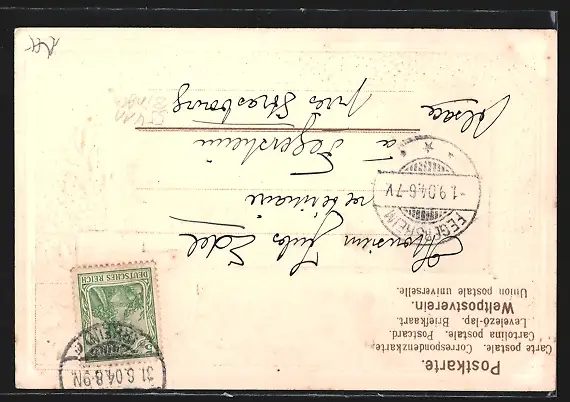 Postkarte.
Carte postale. Correspondenzkarte.
Cartolina postale. Postcard.
Levelező-lap. Briefkaart.
Weltpostverein.
Union postale universelle.
DEUTSCHES REICH
31.8.04.8-9N.
FEGERSHEIM
-1.9.04.6-7V.
Monsieur Jules Edel
vétérinaire
à Fegersheim
près Strasbourg
Alsace